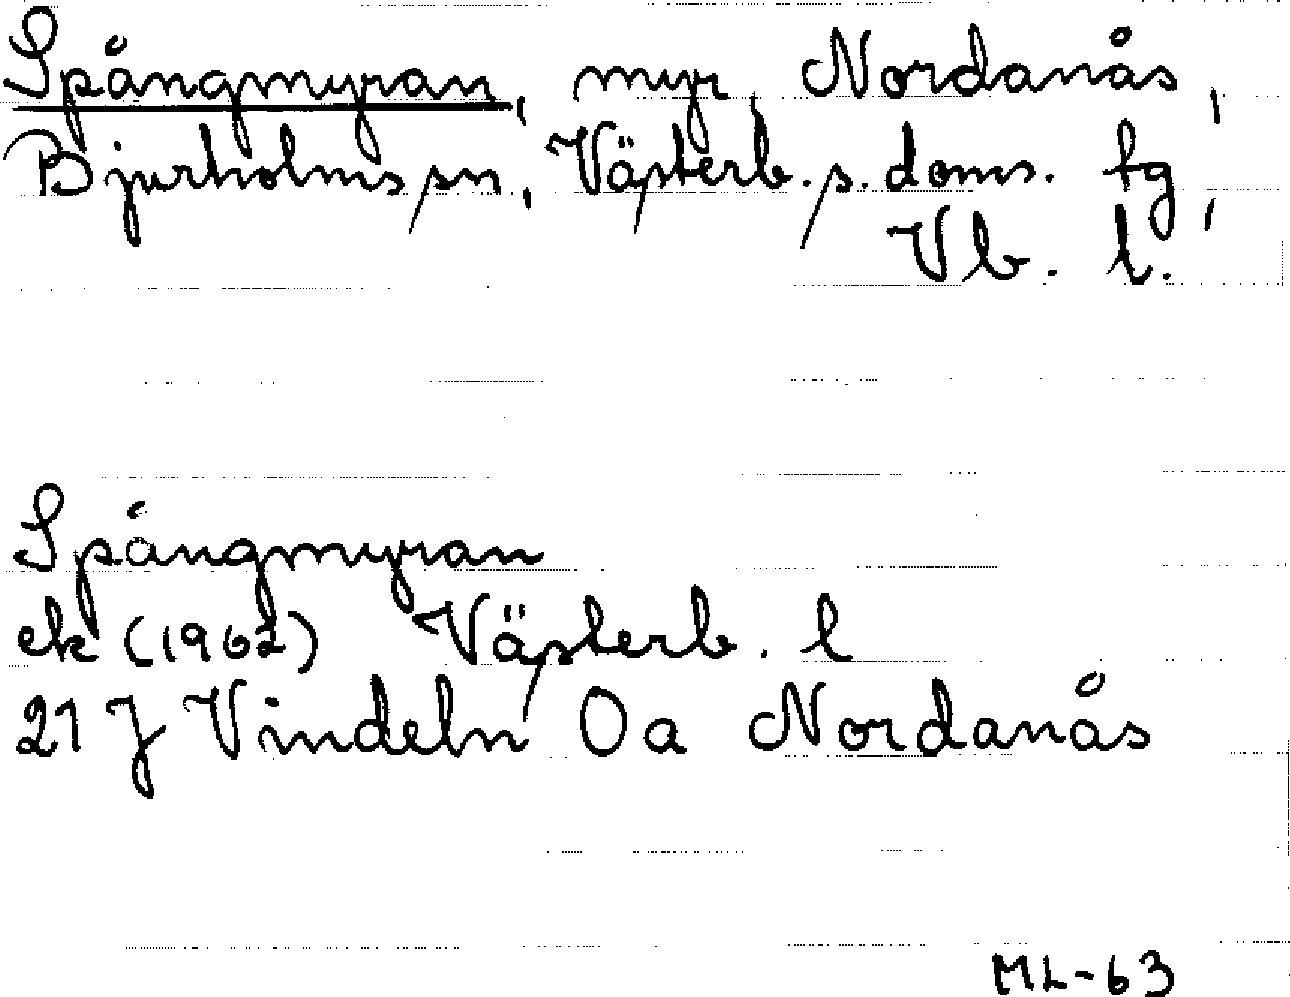 Spångmyran, myr, Nordanås,
Bjurholms sn, Västerb. s. doms. tg,
Vb. l.
Spångmyran
ek (1962) Västerb. l
21 J Vindeln 0a Nordanås
ML-63